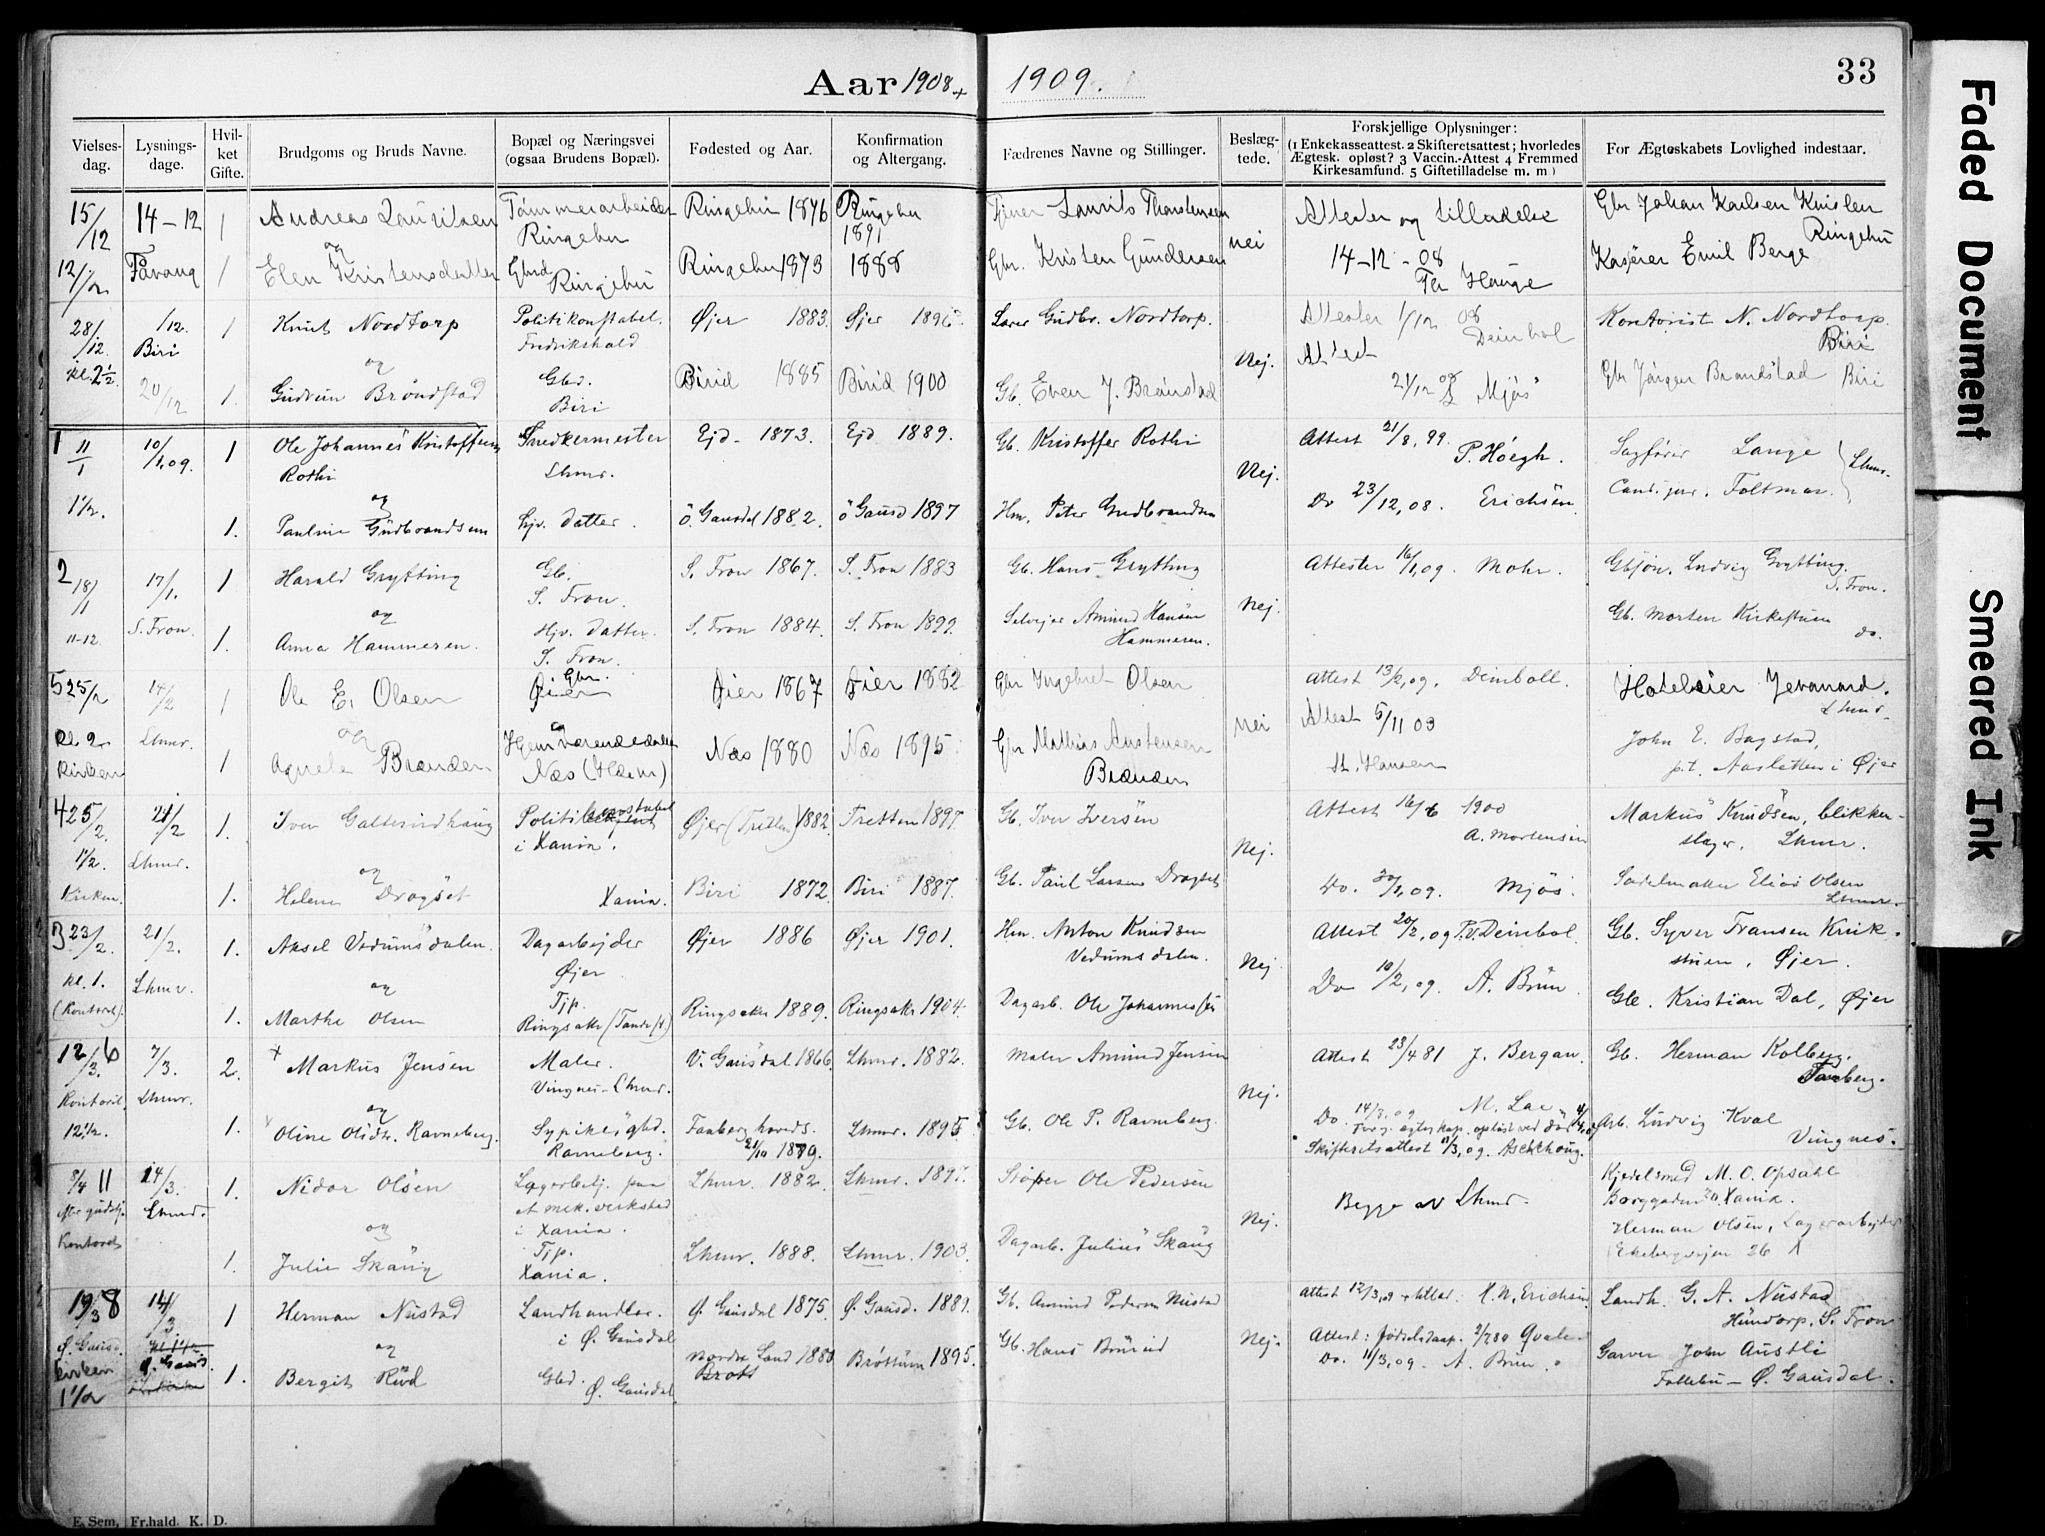 Aar 1908 + 1909.
33
Vielses-dag.
Lysnings-dage.
Hvil-ket Gifte.
Brudgoms og Bruds Navne.
Bopæl og Næringsvei (ogsaa Brudens Bopæl).
Fødested og Aar.
Konfirmation og Altergang.
Fædrenes Navne og Stillinger.
Beslæg-tede.
Forskjellige Oplysninger: (1 Enkekasseattest. 2 Skifteretsattest; hvorledes Ægtesk. opløst? 3 Vaccin.-Attest 4 Fremmed Kirkesamfund. 5 Giftetilladelse m. m)
For Ægteskabets Lovlighed indestaar.
15/12 14-12 1 Andreas Lauritsen Tømmerarbeider Ringebu 1876 Ringebu Laurits Thorstensen Attester og tilladelse Gbr Johan Karlsen
og Ringebu 1891 nei 14-12-08 Ringebu
Fåvang 1 Elen Kristensdatter Gbrd. Ringebu 1873 1888 Gbr. Kristen Gundersen Kaserer Emil Berge
Ringebu Hauge
28/12. 1/12. 1 Knut Nordtorp Politikonstabel. Øjer 1883. Øjer Lærer Gudbr. Nordtorp. Attester 1/12 08 Kontorist N. Nordtorp.
Biri Fredrikshald Deinbol Biri
kl. 2½. og Nej. Attest
20/12 1. Gudrun Brøndstad Gbd. Birid 1885 Birid 1900 Gb. Even J. Brønstad 21/12 08 Mjøs Gbr Jørgen Brøndstad Biri
Biri
1 11/1 10/1,09. 1 Ole Johannes Kristoffersen Snedkermester Ejd. 1873. Ejd. 1889. Gb. Kristoffer Rothi Attest 21/8, 99. Sagfører Lange
Rothi Lhmr. Nej. P. Høegh. Lhmr.
1½. og Do 23/12, 08. Erichsen. Cand. jur. Foltmar.
1. Pauline Gudbrandsen hjv. datter. ö. Gausdal 1882. ö Gausd 1897 Hm. Peter Gudbrandsen
2 18/1 17/1. 1 Harald Grytting Gb. S. Fron 1867. S. Fron 1883 Gb. Hans Grytting Attester 16/1, 09. Mohr. Ludvig Grytting.
S. Fron. S. Fron.
11-12 S. Fron. og nej. Gb. Morten Kirkestuen
1. Anna Hammeren. Hjv. datter. S. Fron 1884. S. Fron 1899. Selvejer Amund Hansen do.
S. Fron. Hammeren.
5 25/2 14/2 1 Ole E. Olsen Gbr. Øier 1867 Øier 1882 Gbr Ingebret Olsen Attest 13/2, 09. Deinboll. Hoteleier Jevanord.
Øier Lhmr.
Kl. 2 Lhmr. og nei Attest 5/11 03 John E. Bagstad,
Kirken 1 Agnete Brænden Hjemmeværende datter Næs 1880 Næs 1895 Gbr Mathias Austensen Hansen p.t. i Øjer
Næs (Hedm) Brænden
4 25/2. 21/2 1. Iver Galterudhaug Politikonstabel Øjer (Tretten) 1882. Tretten 1897. Gb. Iver Iversen Attest 16/6 1900 Markus Knudsen, blikken-
1½. Lhmr. i Xania. A. Mortensen slager, Lhmr.
og Nej.
Kirken. 1. Helene Dragset Xania. Biri 1872 Biri 1887. Gb. Paul Larsen Dragset Do. 30/1, 09. Mjøs. Sadelmaker Elias Olsen
Lhmr.
3 23/2. 21/2. 1. Aksel Vedumsdalen. Dagarbejder Øjer 1886 Øjer 1901. Hm. Anton Knudsen Attest 20/2, 09 P.V. Deinbol. Gb. Syver Fransen Kruk-
Øjer Vedumsdalen. Nej stuen, Øjer.
kl. 1. Lhmr. og Do 10/2, 09. A. Brun. Gb. Kristian Dal, Øjer
(Kontoret). 1. Marthe Olsen Tjp. Ringsaker 1889. Ringsakr 1904. Dagarb. Ole Johannessen
Ringsakr
12/3. 6 7/3. 2. + Markus Jensen Maler. V. Gausdal 1866. Lhmr. 1882. Maler Amund Jensen Attest 23/4 81 J. Bergan. Gb. Herman Kolberg.
Kontoret. Lhmr. Vingnes - Lhmr. Nej. Faaberg.
12½. og Do. 14/3, 09 M. Lae
1. Oline Olsdtr. Ravneberg. Sypike, Faaberg hoveds. Lhmr. 1895 Gb. Ole P. Ravneberg. Forrige egteskap opløst ved død Arb. Ludvig Kval
Ravneberg. 21/10 1879. Skifteretsattest 11/3, 09. Aschehoug. Vingnes.
8/4 11 14/3. 1. Nidor Olsen Lagerbetj. paa Lhmr. 1882. Lhmr. 1897. Støper Ole Pedersen Begge av Lhmr. Kjedelsmed M. O. Opsahl
Lhmr. et mek. verksted Borggaden Xania.
Kontoret og i Xania. Nej. Herman Olsen, Lagerarbejder
1. Julie Skaug Tjp. Lhmr. 1888. Lhmr. 1903. Dagarb. Julius Skaug Ekebergvejen 26
Xania.
19/3 8 14/3 1 Herman Nustad Landhandler. Ø. Gausdal 1875. Ø. Gausd. 1889. Gb. Amund Pedersen Nustad Attest 12/3, 09 H. N. Erichsen. Landh. G. A. Nustad
Ø. Gausd. i Ø. Gausdal Hundorp. S. Fron
kirken Ø. Gausd. og Nordre Land 1880 Brøttum 1895. Gb. Hans Nej. Attest: fødselsdaap. Qvale Garver John Austli
1½ 1. Bergit Rud Gbd. Brøtt Do. 11/3, 09. A. Brun. Follebu - Ø. Gausdal.
Ø. Gausdal
E. Sem, Fr.hald K. D.
Faded Document
Smeared Ink